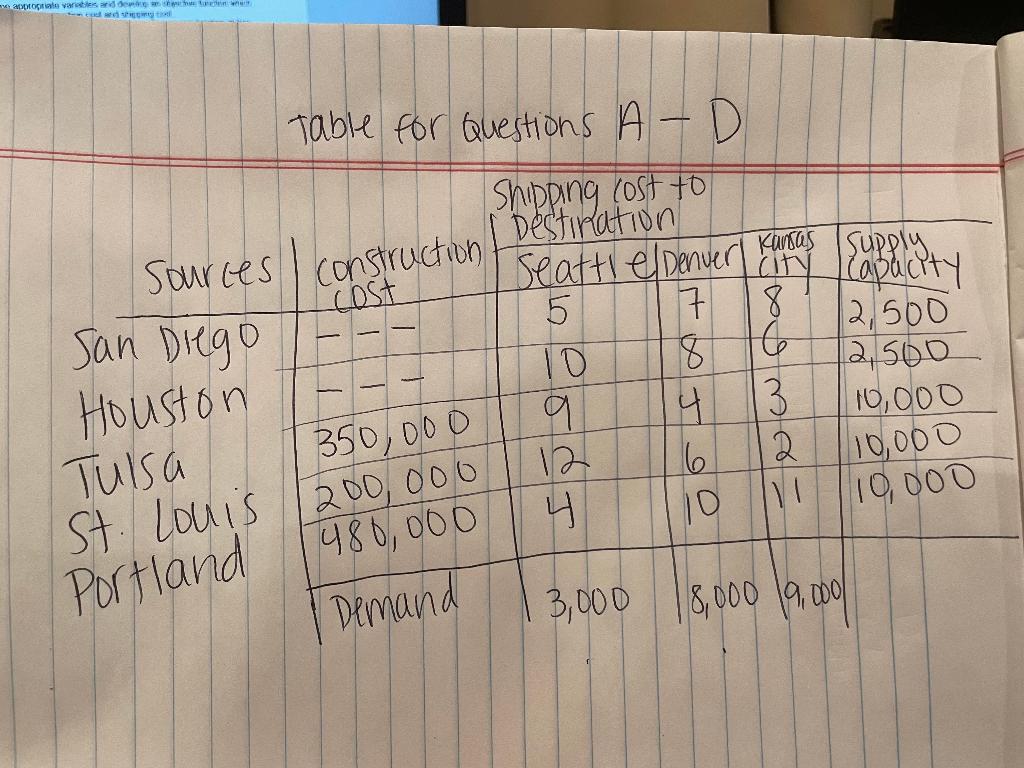 appropriate variables and develop an objective function which
cost and shipping cost
Table for Questions A - D
Shipping Cost to
Destination
Sources Construction Cost Seattle Denver Kansas City Supply Capacity
San Diego - - - 5 7 8 2,500
Houston - - - 10 8 6 2,500
Tulsa 350,000 9 4 3 10,000
St. Louis 200,000 12 6 2 10,000
Portland 480,000 4 10 11 10,000
Demand 3,000 8,000 9,000